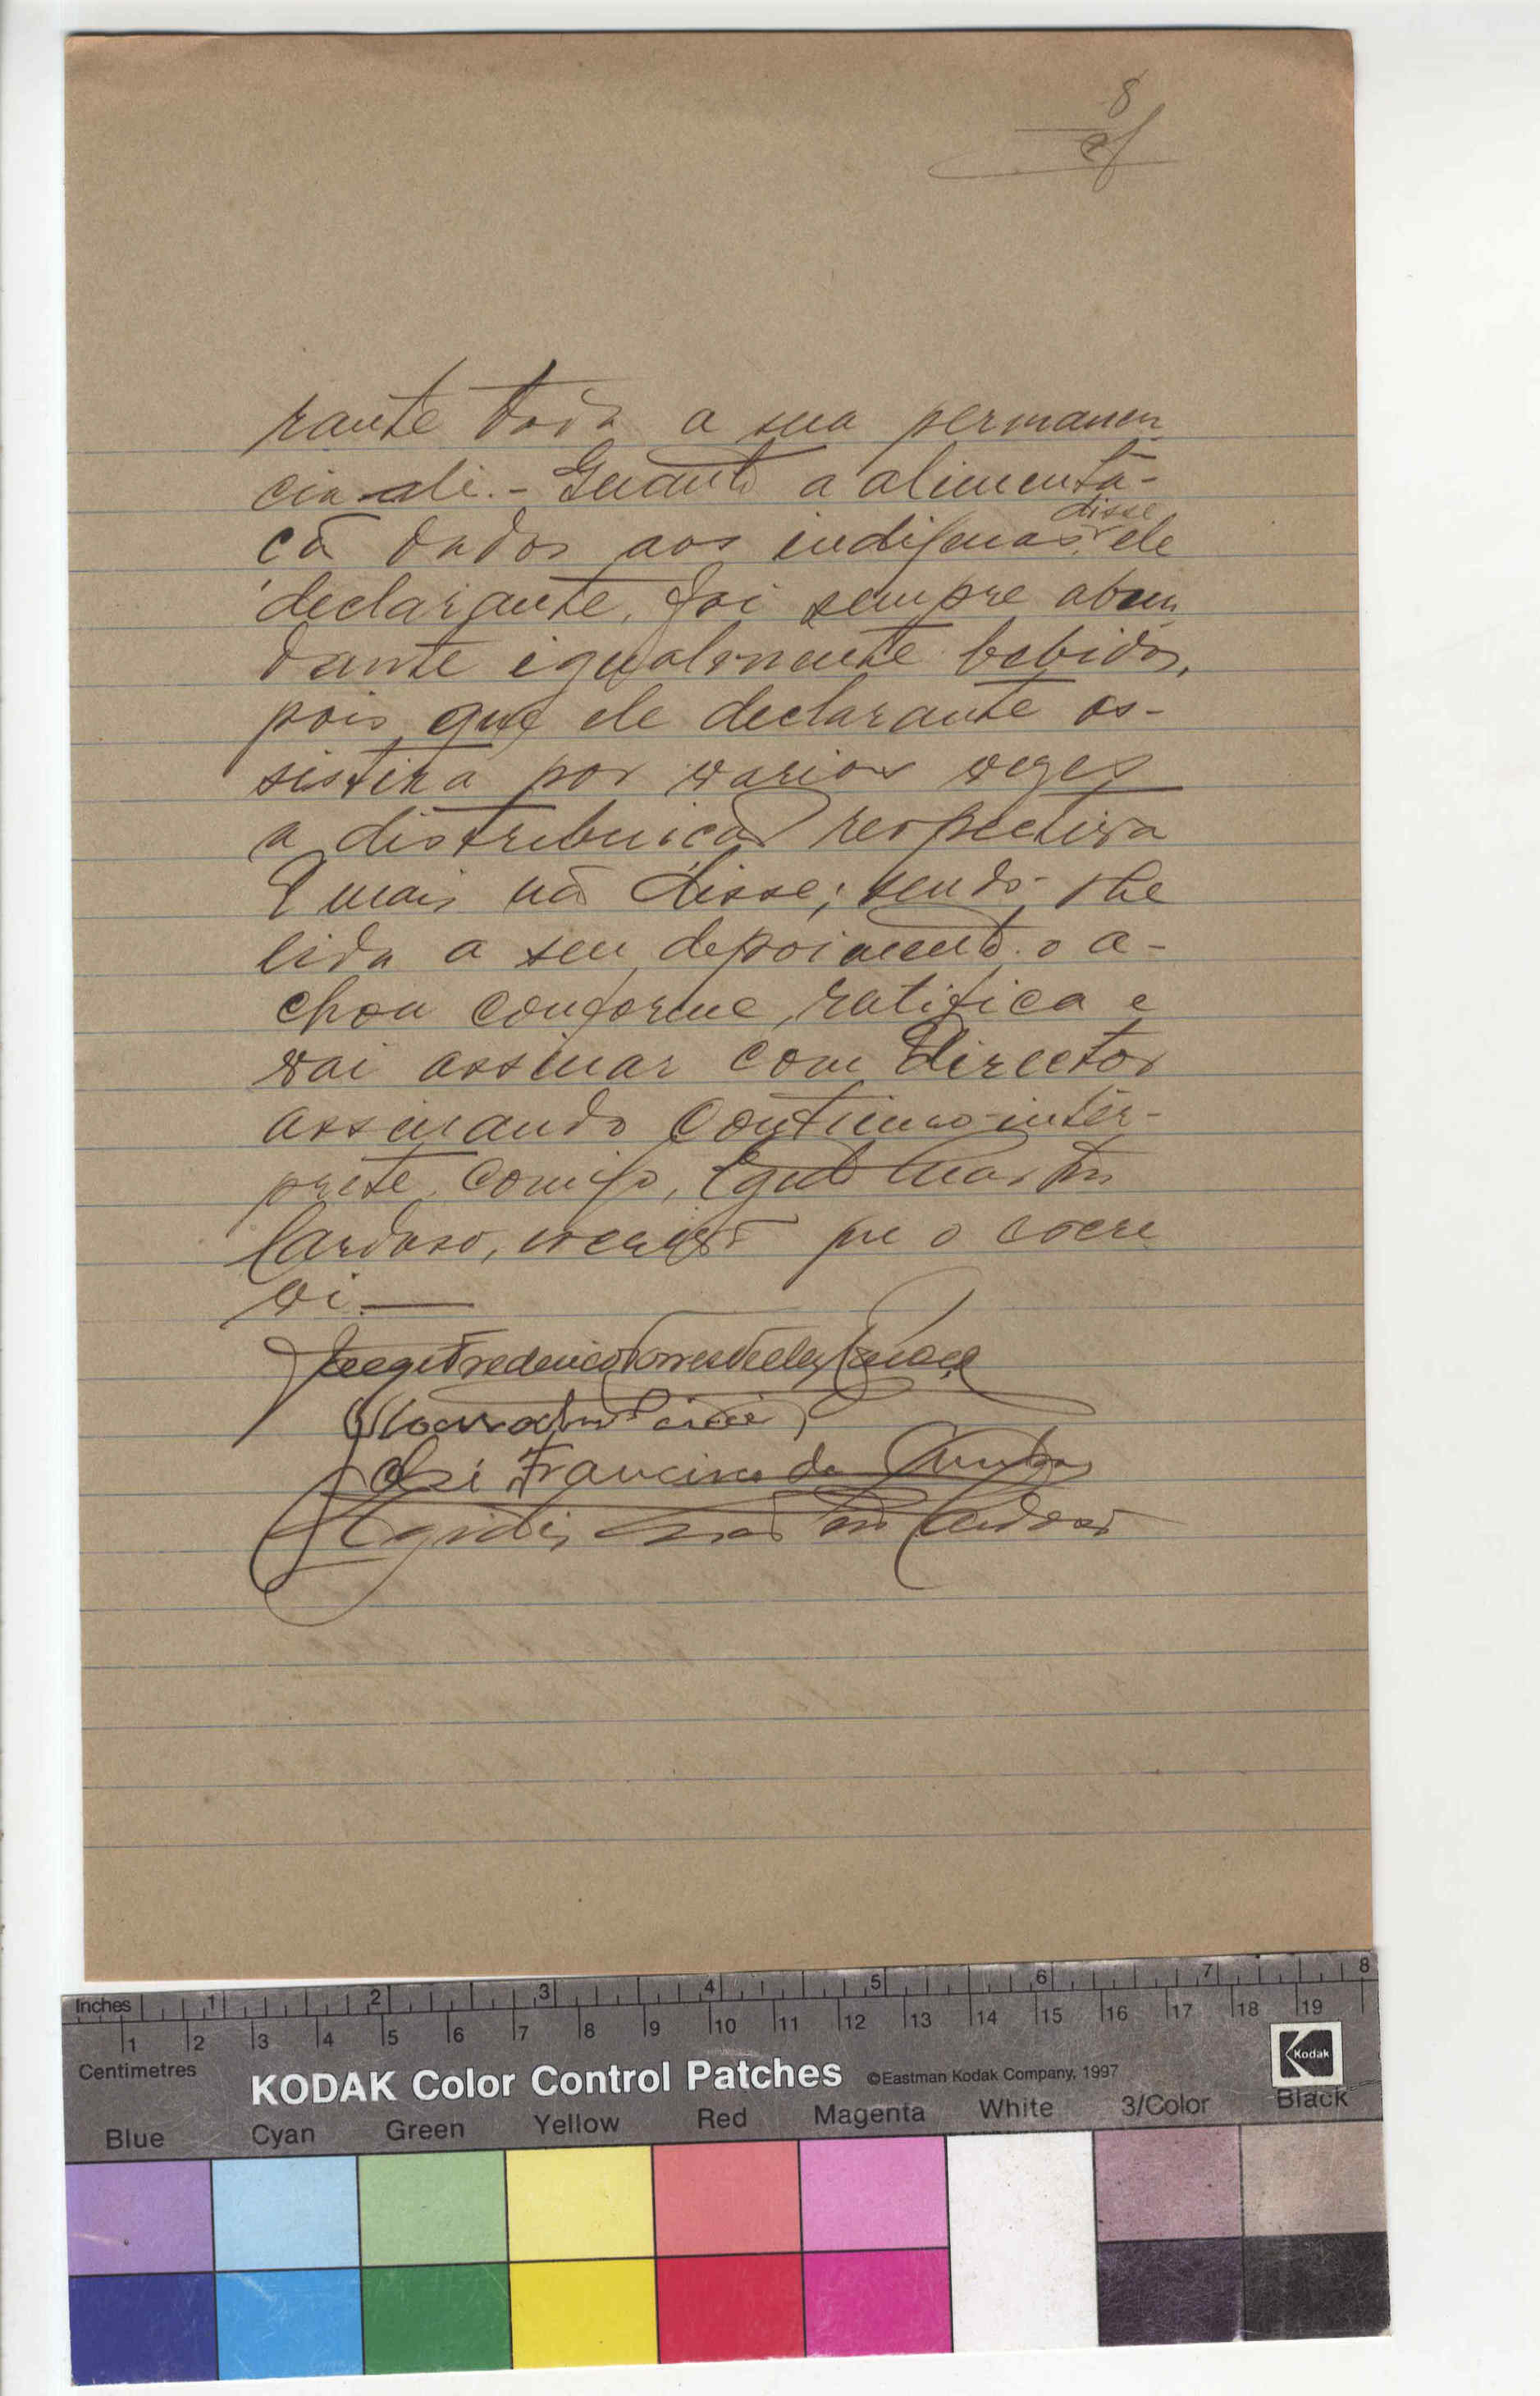 8
rante toda a sua permanen
cia ali. - Quanto a alimenta-
cã dados aos indigenas, disse ele
declarante, foi sempre abun
dante igualmente bebidas,
pois que ele declarante as-
sistira por varias vezes
a distribuicão respectiva
E mais nã disse; sendo-lhe
lida a seu depoimento o a-
chou conforme, ratifica e
vai assinar com Director
assinando continuo-inter-
prete comigo, Egidio Martins
Cardoso, que o escre
vi.—
Frederico Torres
José Francisco da Cunha
Egidio Martins Cardoso
Inches 1 2 3 4 5 6 7 8
1 2 3 4 5 6 7 8 9 10 11 12 13 14 15 16 17 18 19
Centimetres
KODAK Color Control Patches ©Eastman Kodak Company, 1997 Kodak
Blue Cyan Green Yellow Red Magenta White 3/Color Black